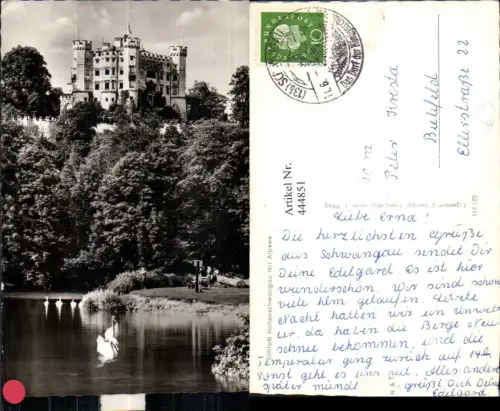 Schloß Hohenschwangau mit Alpsee
DEUTSCHE
BUNDESPOST
10
Peter Kresta
Bielefeld
Ellerstraße 22
Artikel Nr.
444851
Liebe Erna!
Die herzlichsten Grüße
aus Schwangau sendet Dir
Deine Edelgard. Es ist hier
wunderschön. Wir sind schon
viele klm gelaufen. Letzte
Nacht hatten wir ein Unwet-
ter, da haben die Berge Neu-
schnee bekommen, und die
Temperatur ging zurück auf 14°.
Sonst geht es uns gut. Alles andere
später mündl. grüßt Dich Deine
Edelgard